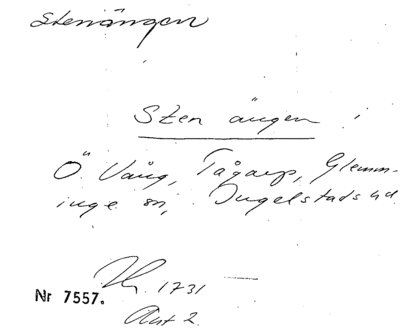 Stenängen
Sten ängen i
Ö Vång, Tågarp, Glemm-
inge sn, Ingelstads hd.
1731
Nr 7557.
Akt 2.